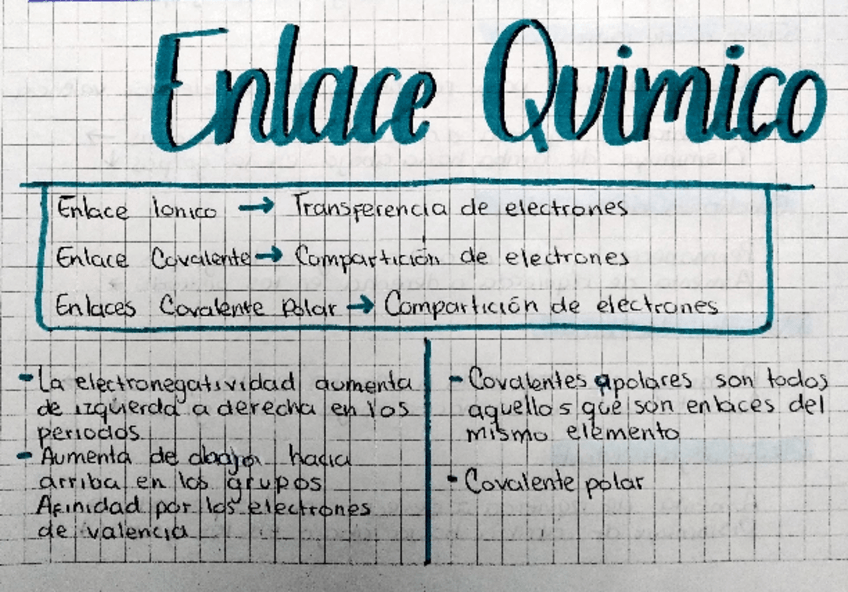 Enlace Quimico
Enlace Ionico → Transferencia de electrones
Enlace Covalente → Compartición de electrones
Enlaces Covalente Polar → Compartición de electrones
- La electronegatividad aumenta
de izquierda a derecha en los
periodos
- Aumenta de abajo hacia
arriba en los grupos
Afinidad por los electrones
de valencia
- Covalentes apolares son todos
aquellos que son enlaces del
mismo elemento
- Covalente polar